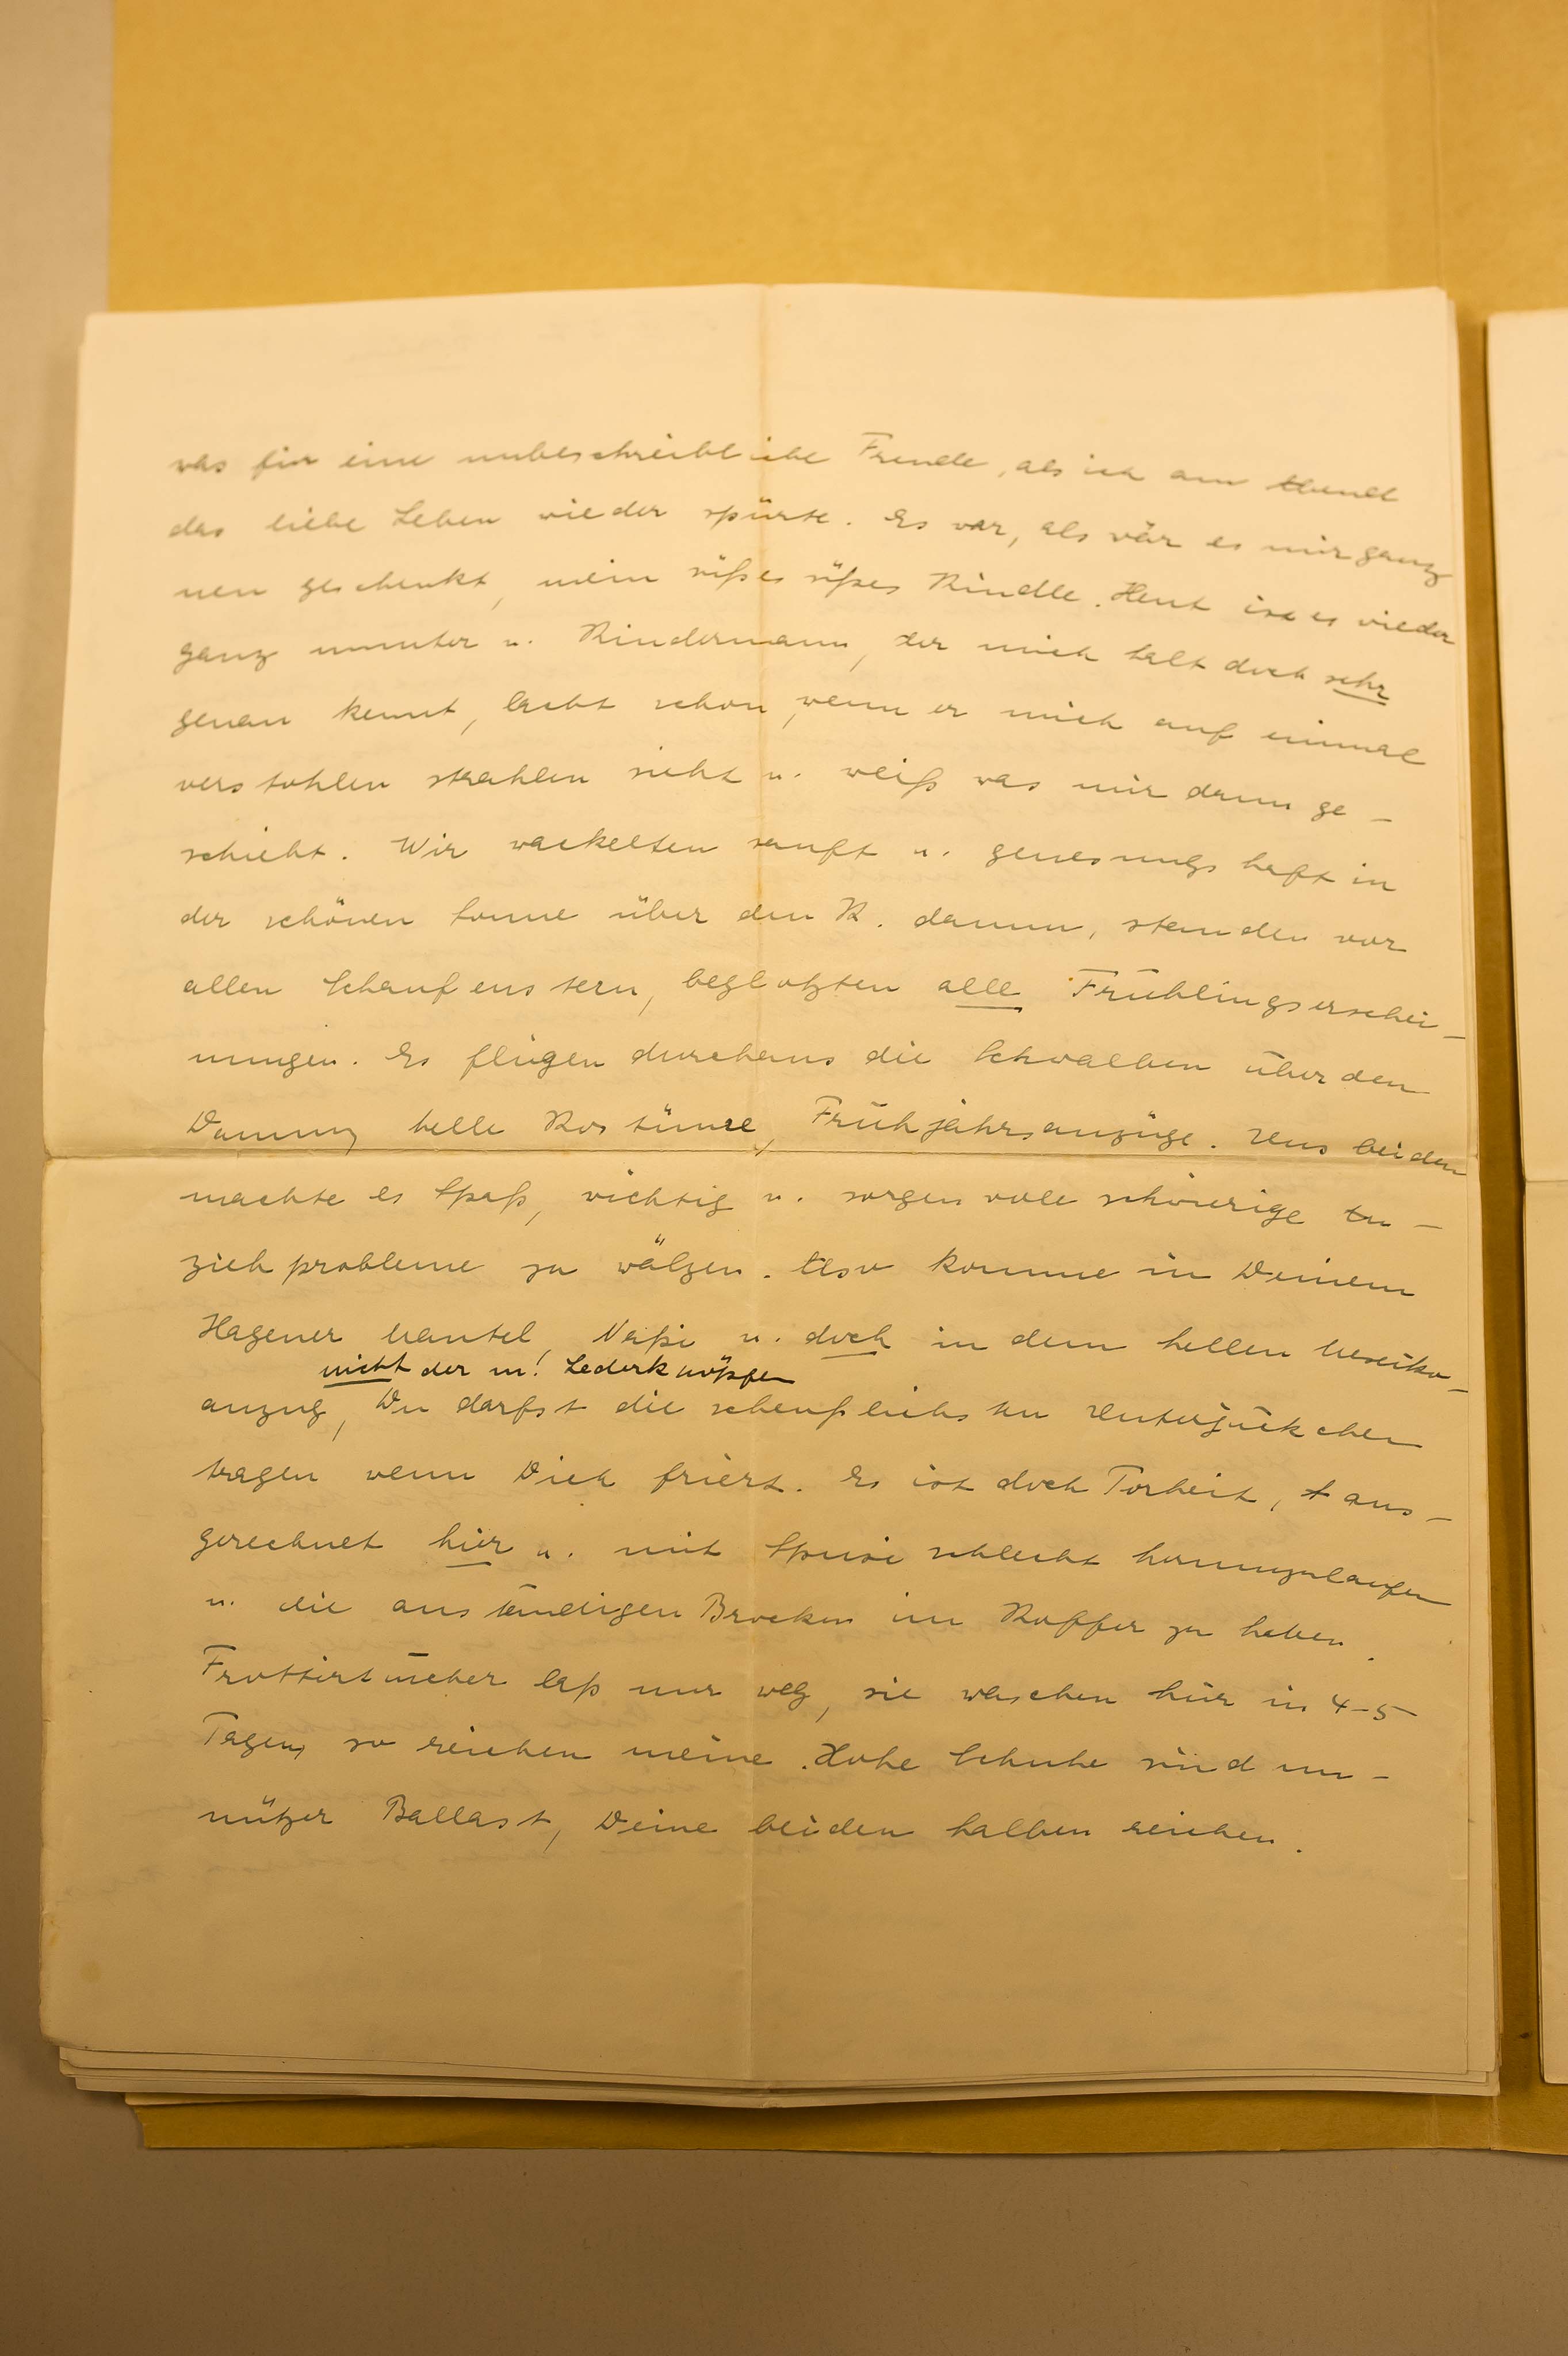 was für eine unbeschreibliche Freude, als ich am Abend
das liebe Leben wieder spürte. Es war, als wär es mir ganz
neu geschenkt, mein süßes süßes Kindle. Heut ist es wieder
ganz munter u. Kindermann, der mich halt doch sehr
genau kennt, lacht schon, wenn er mich auf einmal
verstohlen strahlen sieht u. weiß was mir dann ge-
schieht. Wir wackelten sanft u. genesungshaft in
der schönen Sonne über den K. damm, standen vor
allen Schaufenstern, beglotzten alle Frühlingserschei-
nungen. Es fliegen durchaus die Schwalben über den
Damm, helle Kostüme, Frühjahrsanzüge. Uns beiden
machte es Spaß, wichtig u. sorgenvoll schwierige An-
ziehprobleme zu wälzen. Also komme in Deinem
Hagener Mantel, u. doch in dem hellen
nicht der m! Lederknöpfen
anzug, Du darfst die scheußlichsten Unterjäckchen
tragen wenn Dich friert. Es ist doch Torheit, aus-
gerechnet hier u. mit schlecht herumzulaufen
u. die anständigen Brocken im Koffer zu haben.
Frottiertücher laß nur weg, sie waschen hier in 4-5
Tagen, so reichen meine. Hohe Schuhe sind un-
nützer Ballast, Deine beiden halben reichen.